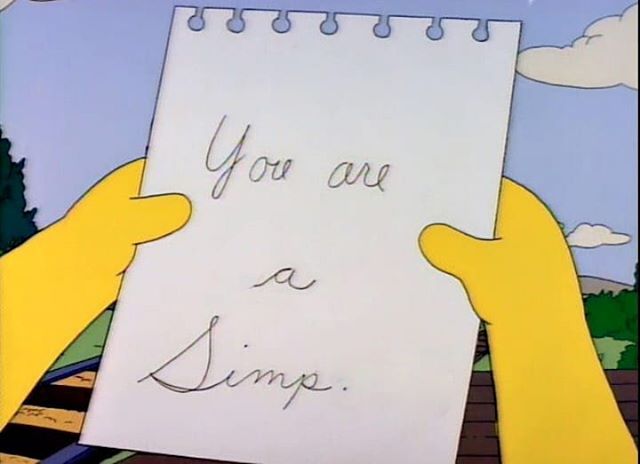 You are
a
Simp.